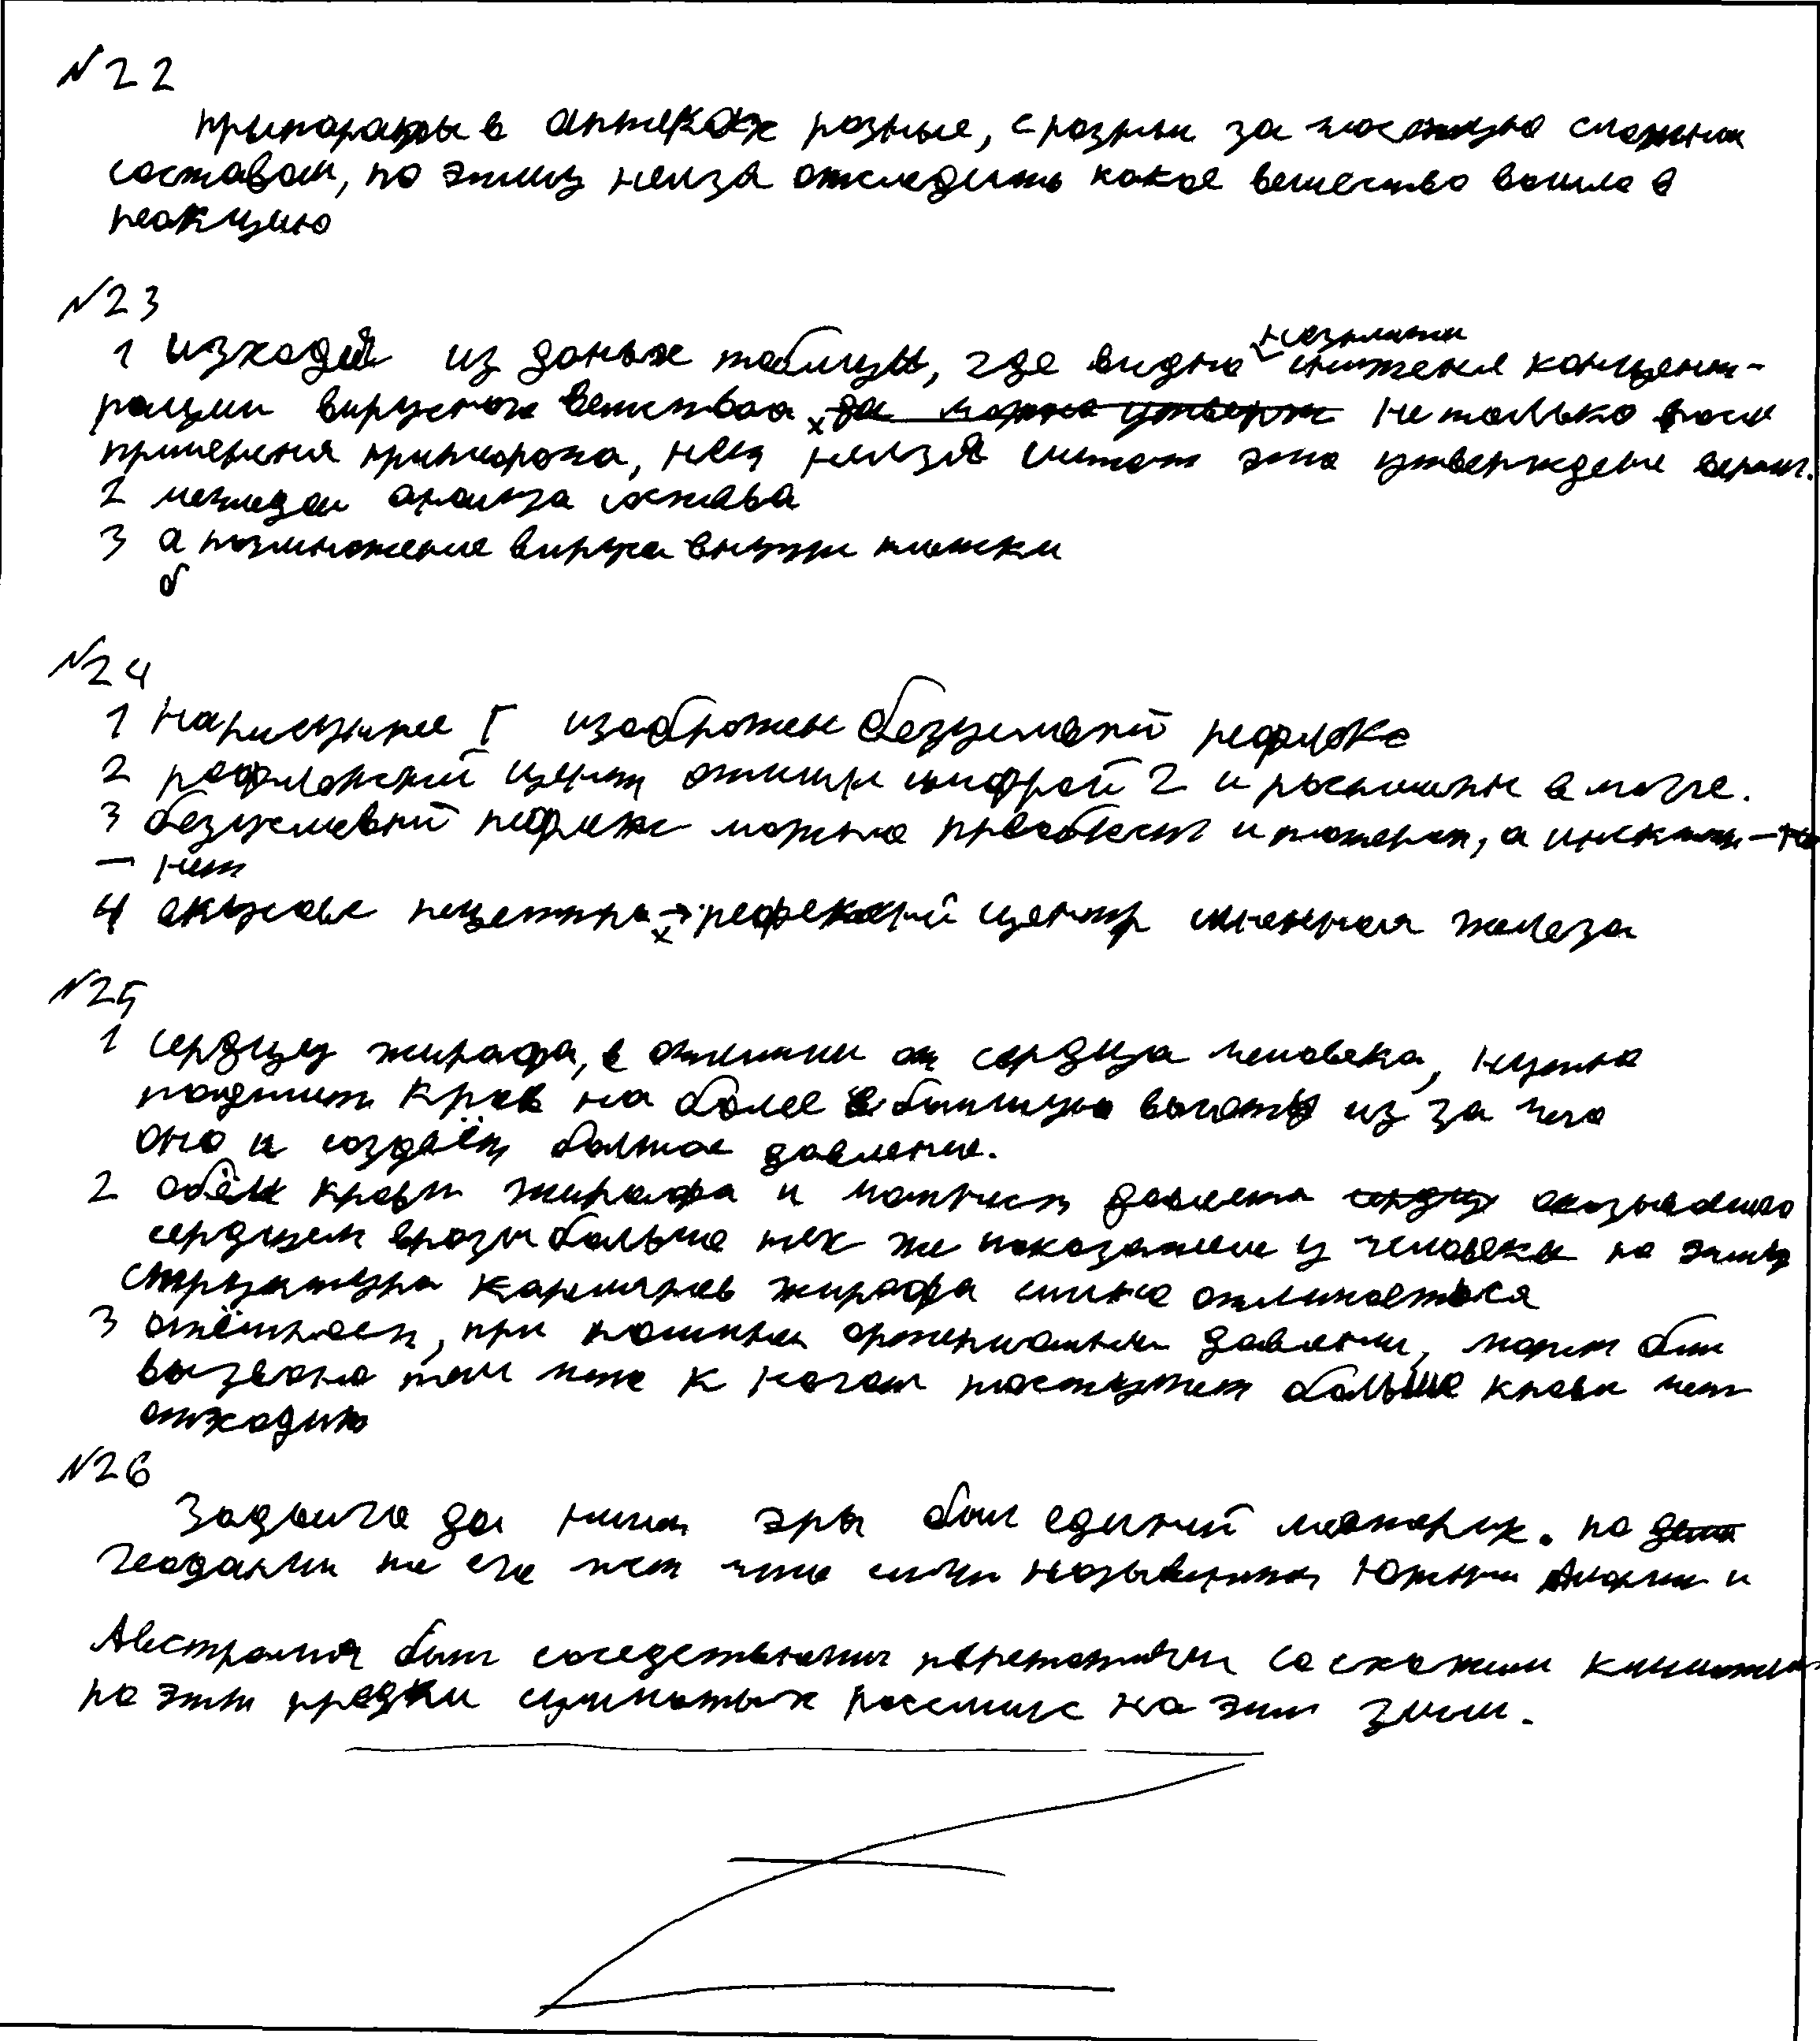 N22
припораты в аптеках розные, с розным за частую сложным
составом, по этому нелза отследить какое вешество вошло в
реакцию
N23
1 изходя из даных таблицы, где видно незначит снижение концент-
рации вирусных веществ не только после
применения припората, нельзя считат это утверждение верным.
2 методом анализа состава
3 а розмножение вируса внутри клетки
б
N24
1 На рисунке I изоброжен безусловный рефлекс
2 рефлекторный центр отмечен цифрой 2 и
3 безусловный рефлекс можно приобрест и потерят, а инстинкт - не
- нет
4 вкусовые рецепторы → рефлекторный центр слюнная железа
N25
1 сердцу жирафа, в отличии от сердца человека, нужно
поднимат кров на более большую высоту из за чего
оно и создаёт болшое давление.
2 обём крови жирафа и давления оказываемого
сердцем вразы больше тех же показателей у человека по этому
структура капиляров жирафа силно отличаеться
3 отёчность, при артериалном давлении, может быт
вызвано тем что к ногам поступает больше крови чем
отходит
N26
Задолго до нашей эры был единый материк. по
тем что сейчас Южной Америкой и
Австралия были соседствеными со схожим климатом
по этому предки сумчатых на этих землях.